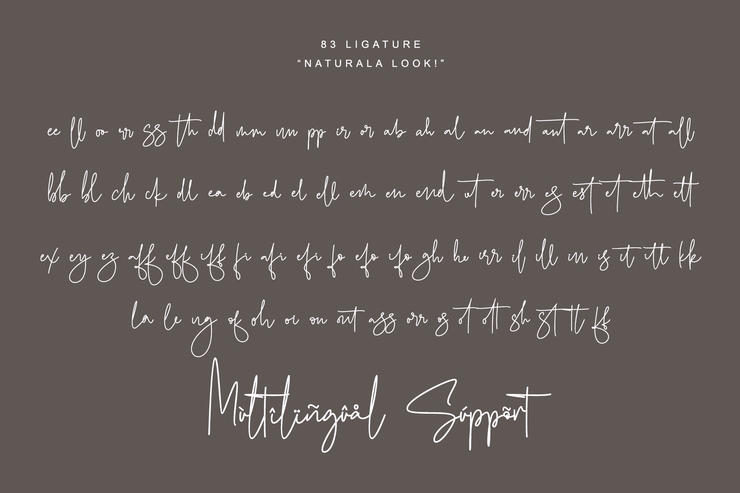 83 LIGATURE
“NATURALA LOOK!”
ee ll oo rr ss th dd mm nn pp ir or ab ah al an and ant ar arr at all
bb bl ch ck dl ea eb ed el ell em en end nt er err es est et eth ett
ex ey ez aff eff iff fi afi efi fo efo ifo gh he irr il ill in is it itt kk
la le ng of oh oi on ont ass orr os ot ott sh st tt ff
Mùltîlïñgûål Súppørt